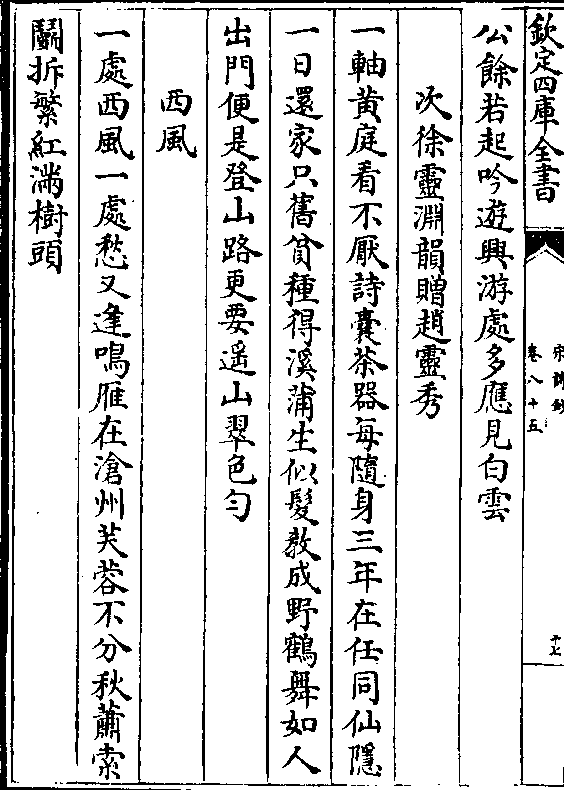 欽定四庫全書
宋詩鈔
卷八十五
十七
公餘若起吟遊興游處多應見白雲
次徐靈淵韻贈趙靈秀
一軸黃庭看不厭詩囊茶器每隨身三年在任同仙隱
一日還家只舊貧種得溪蒲生似髮教成野鶴舞如人
出門便是登山路更要遥山翠色勻
西風
一處西風一處愁又逢鳴雁在滄州芙蓉不分秋蕭索
鬭拆繁紅滿樹頭